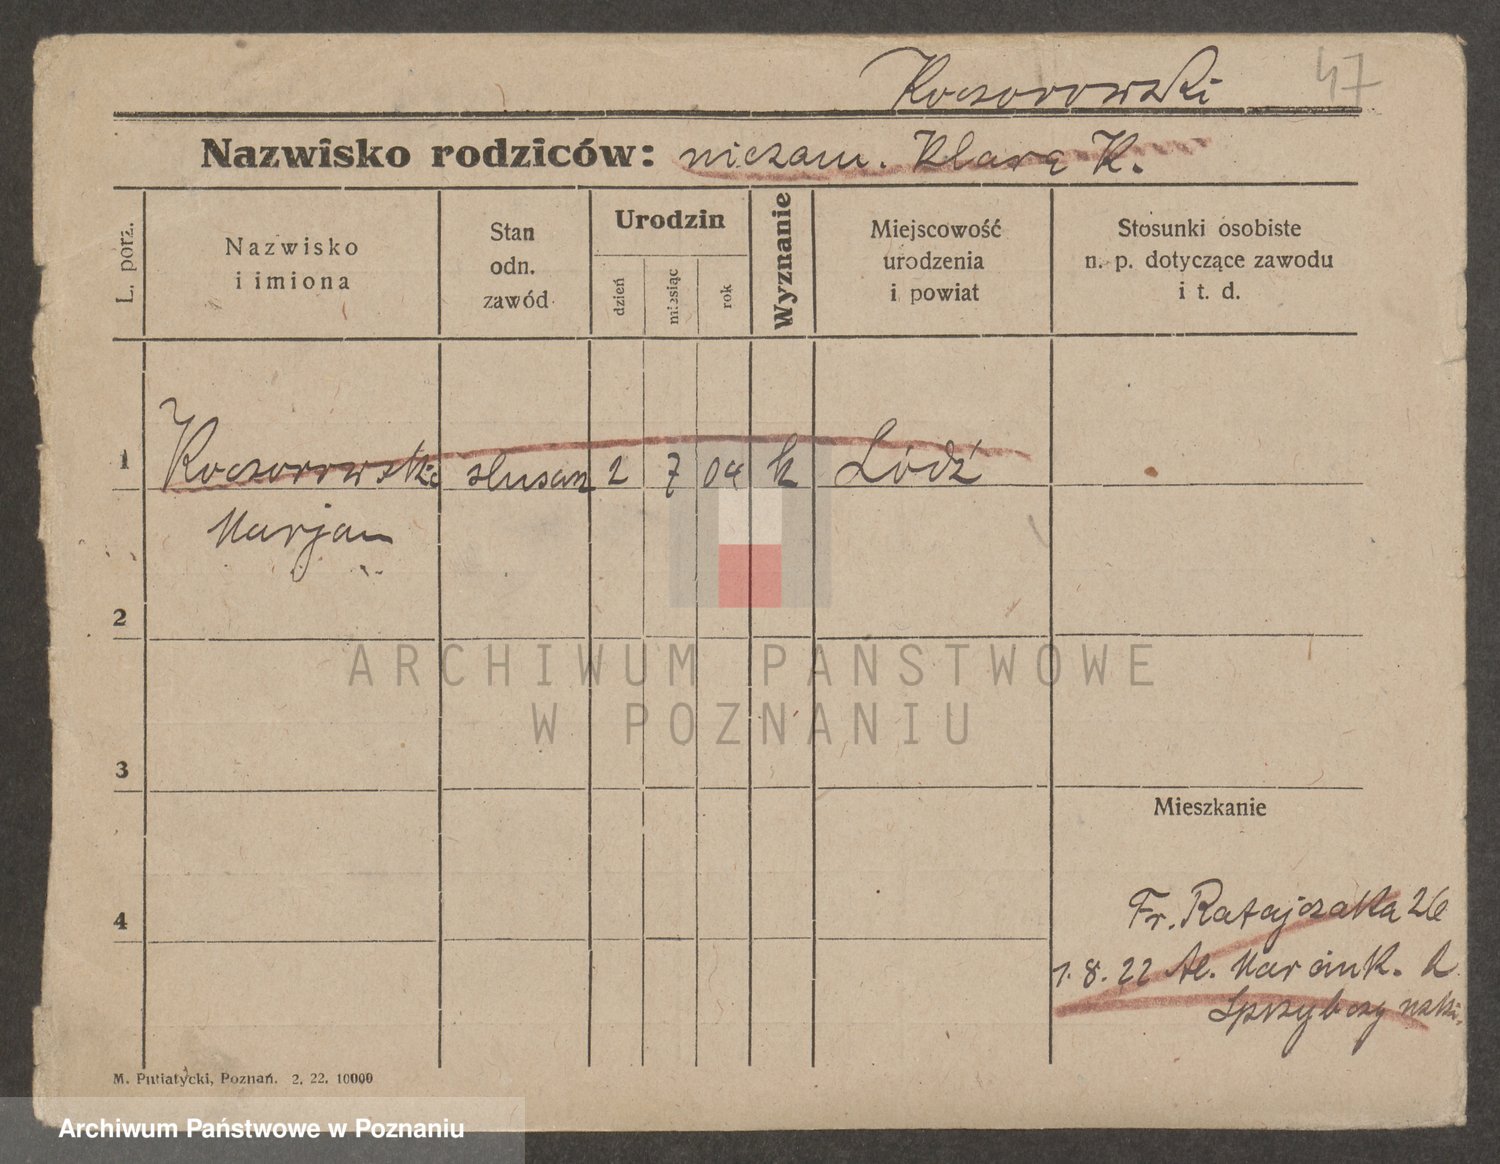 Koczorowski
47
Nazwisko rodziców: niezam. Klara K.
L. porz.
Nazwisko
i imiona
Stan
odn.
zawód
Urodzin
dzień
miesiąc
rok
Wyznanie
Miejscowość
urodzenia
i powiat
Stosunki osobiste
n. p. dotyczące zawodu
i t. d.
1 Koczorowski ślusarz 2 7 04 k Łódź
Marjan
2
ARCHIWUM PAŃSTWOWE
W POZNANIU
3
Mieszkanie
4
Fr. Ratajczaka 26
1.8.22 Al. Marcink. 2
M. Putiatycki, Poznań. 2. 22. 10000
Archiwum Państwowe w Poznaniu